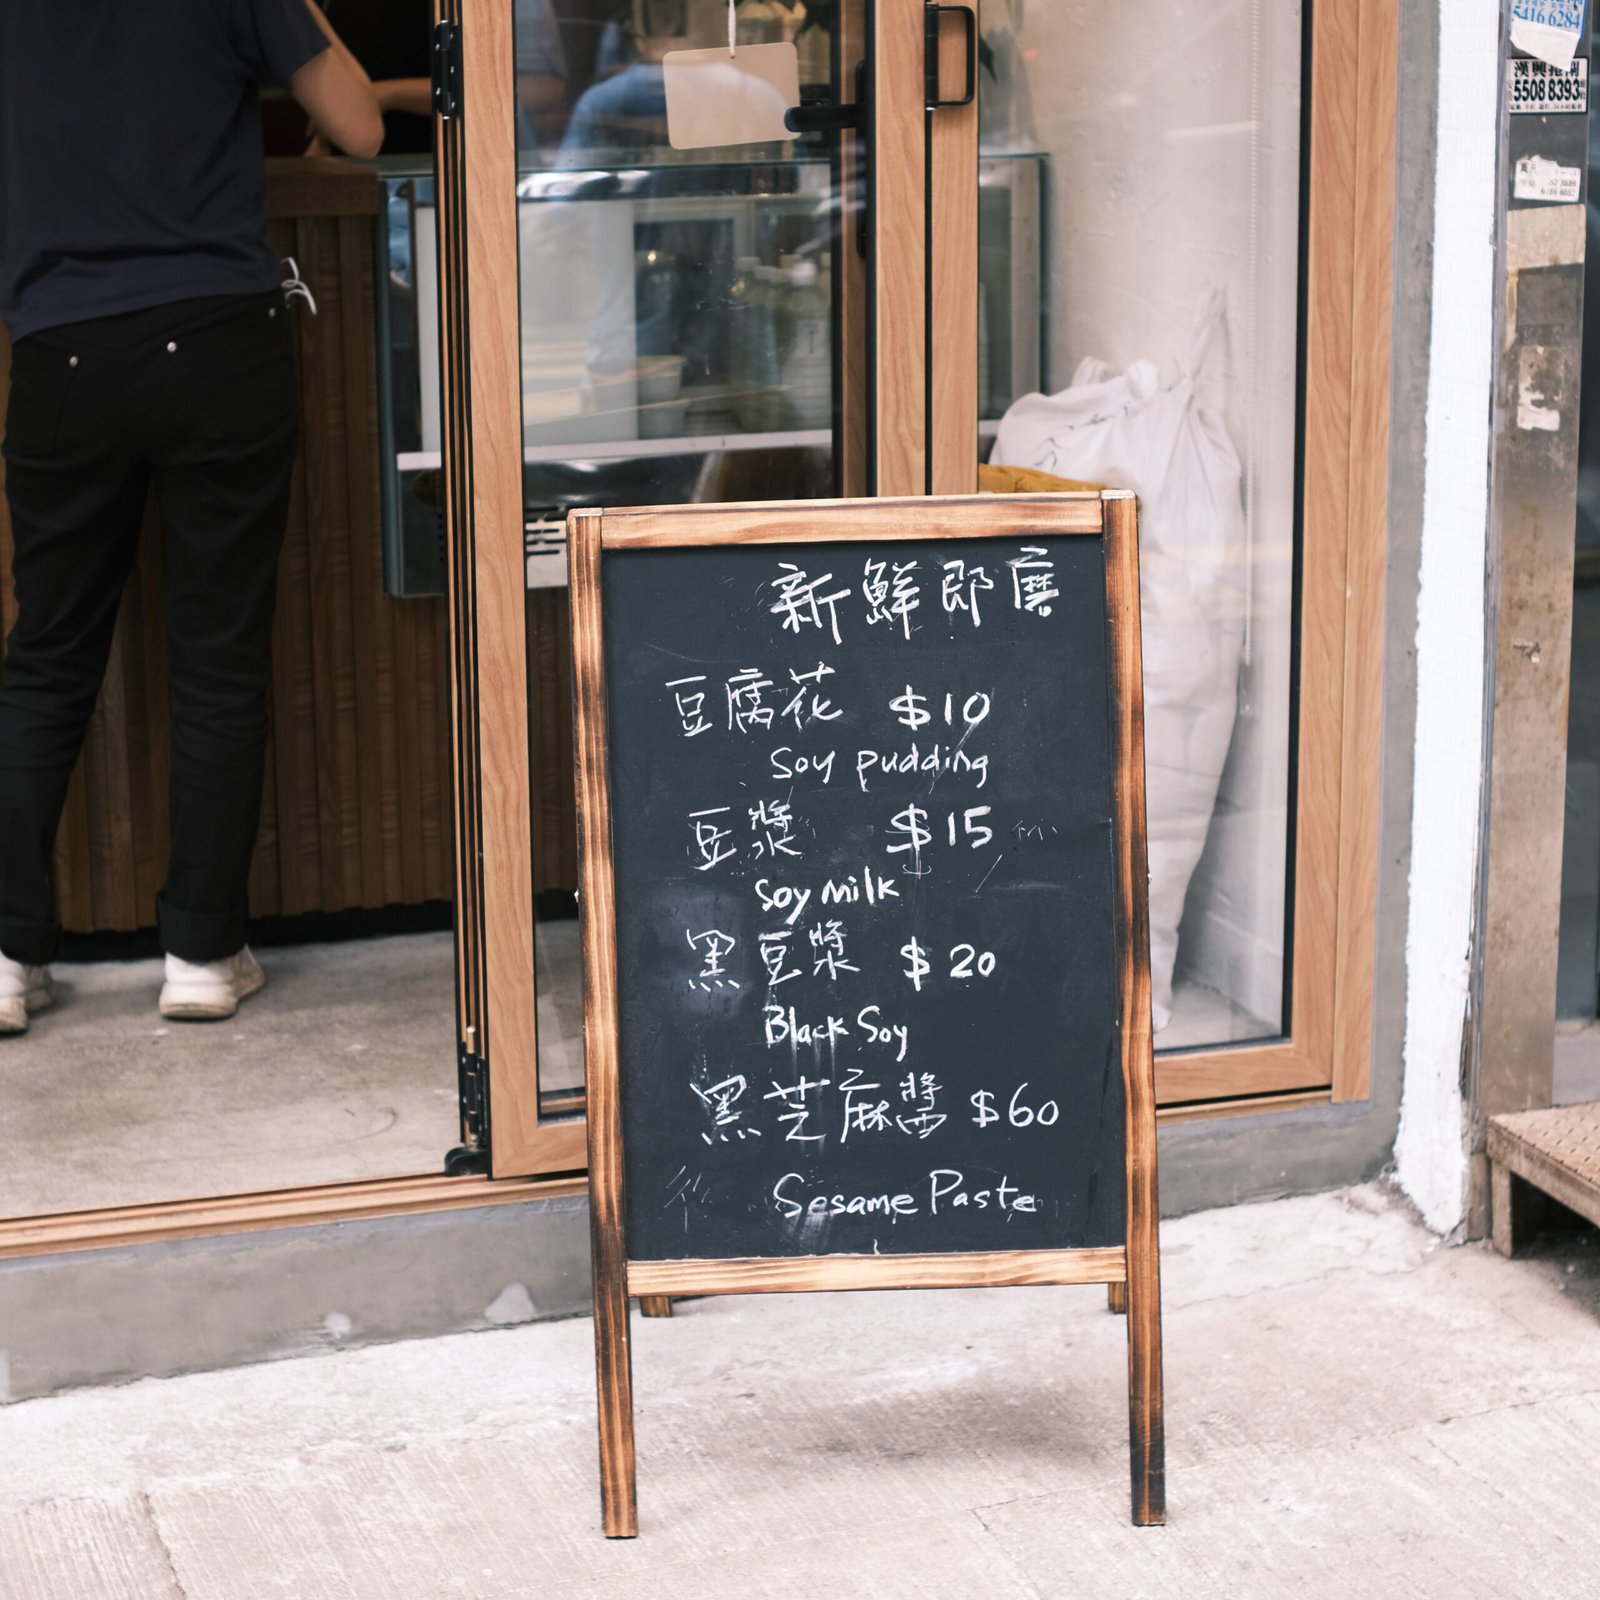 新鮮即磨
豆腐花 $10
Soy pudding
豆漿 $15
Soy Milk
黑豆漿 $20
Black Soy
黑芝麻醬 $60
Sesame Paste
5416 6284
5508 8393